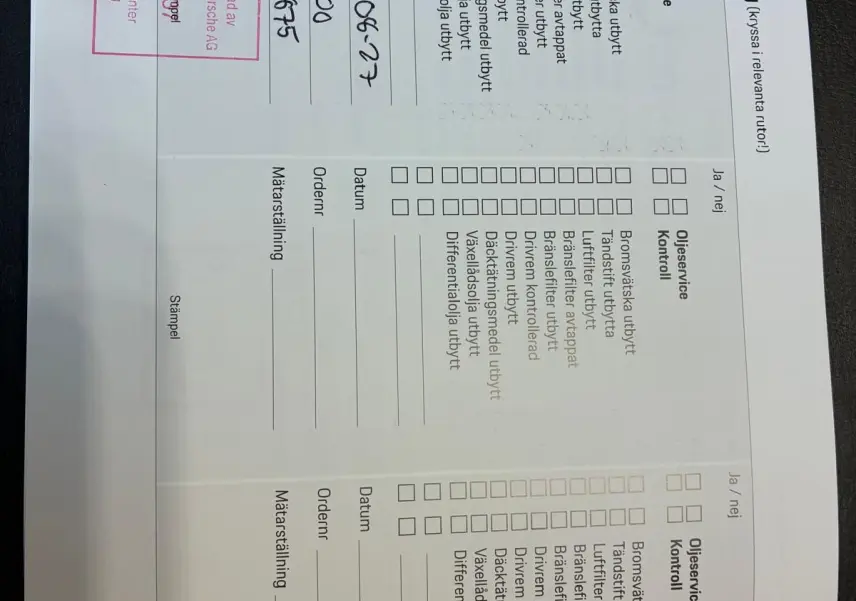 (kryssa i relevanta rutor!)
e
ska utbytt
tbytta
tbytt
er avtappat
er utbytt
ntrollerad
ytt
gsmedel utbytt
a utbytt
olja utbytt
08-27
00
675
ad av
rsche AG
mpel
nter
Ja / nej
Oljeservice
Kontroll
Bromsvätska utbytt
Tändstift utbytta
Luftfilter utbytt
Bränslefilter avtappat
Bränslefilter utbytt
Drivrem kontrollerad
Drivrem utbytt
Däcktätningsmedel utbytt
Växellådsolja utbytt
Differentialolja utbytt
Datum
Ordernr
Mätarställning
Stämpel
Ja / nej
Oljeservic
Kontroll
Bromsvät
Tändstift
Luftfilter
Bränslefi
Bränslefi
Drivrem
Drivrem
Däcktät
Växellåd
Differen
Datum
Ordernr
Mätarställning